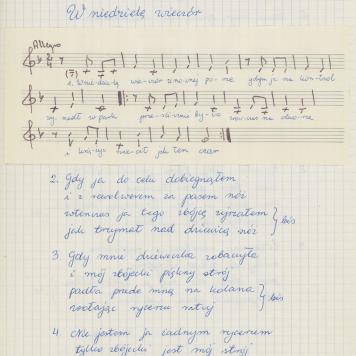 W niedzielę wieczór
Allegro
1. W nie-dzie-lę wie-czór zimowej po-rze gdym ja na kon-trol
wy-szedł w park
i
2. Gdy ja do celu dobiegnąłem
i z rewolwerem za pasem nóż
wtenczas ja tego zbójcę ujrzałem
jak trzymał nad dziewicą nóż } bis
3. Gdy mnie dzieweczka zobaczyła
i mój zbójecki piękny strój
padła przede mną na kolana
wołając rycerzu mój } bis
4. Nie jestem ja żadnym rycerzem
tylko zbójecki jest mój strój